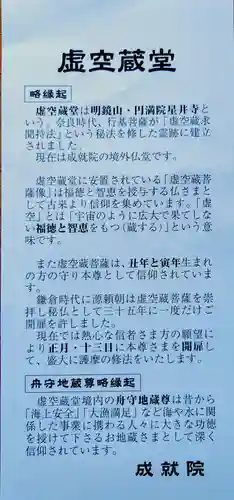 虚空蔵堂
略縁起
虚空蔵堂は明鏡山・円満院星井寺と
いう。奈良時代、行基菩薩が「虚空蔵求
聞持法」という秘法を修した霊跡に建立
されました。
現在は成就院の境外仏堂です。
虚空蔵堂に安置されている「虚空蔵菩
薩像」は福徳と智恵を授与する仏さまと
して古来より信仰を集めています。「虚
空」とは「宇宙のように広大で果てしな
い福徳と智恵をもつ(蔵する)」という意
味です。
また虚空蔵菩薩は、丑年と寅年生まれ
の方の守り本尊として信仰されていま
す。
鎌倉時代に源頼朝は虚空蔵菩薩を崇
拝し秘仏として三十五年に一度だけご
開扉を許しました。
現在では熱心な信者さま方の願望に
より正月・十三日に本尊さまを開扉し
て、盛大に護摩の修法をいたします。
舟守地蔵尊略縁起
虚空蔵堂境内の舟守地蔵尊は昔から
「海上安全」「大漁満足」など海や水に関
係した事業に携わる人々に大きな功徳
を授けて下さるお地蔵さまとして深く
信仰されています。
成就院